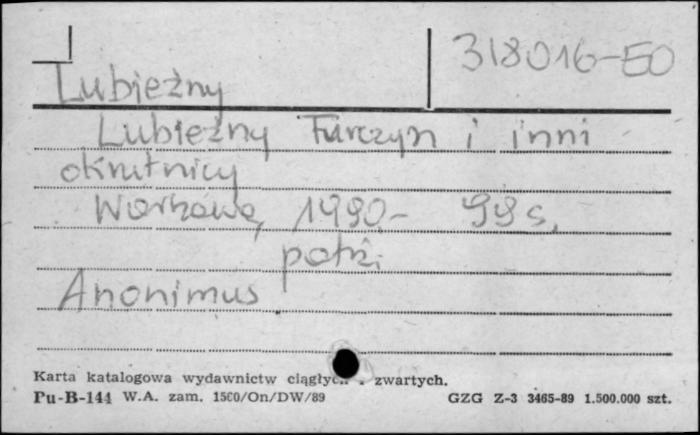 318016-EO
Lubieżny
Lubieżny Turczyn i inni
okrutnicy
Warszawa, 1990.- 98 s.
patrz:
Anonimus
Karta katalogowa wydawnictw ciągłych i zwartych.
Pu-B-144 W.A. zam. 1500/On/DW/89 GZG Z-3 3465-89 1.500.000 szt.